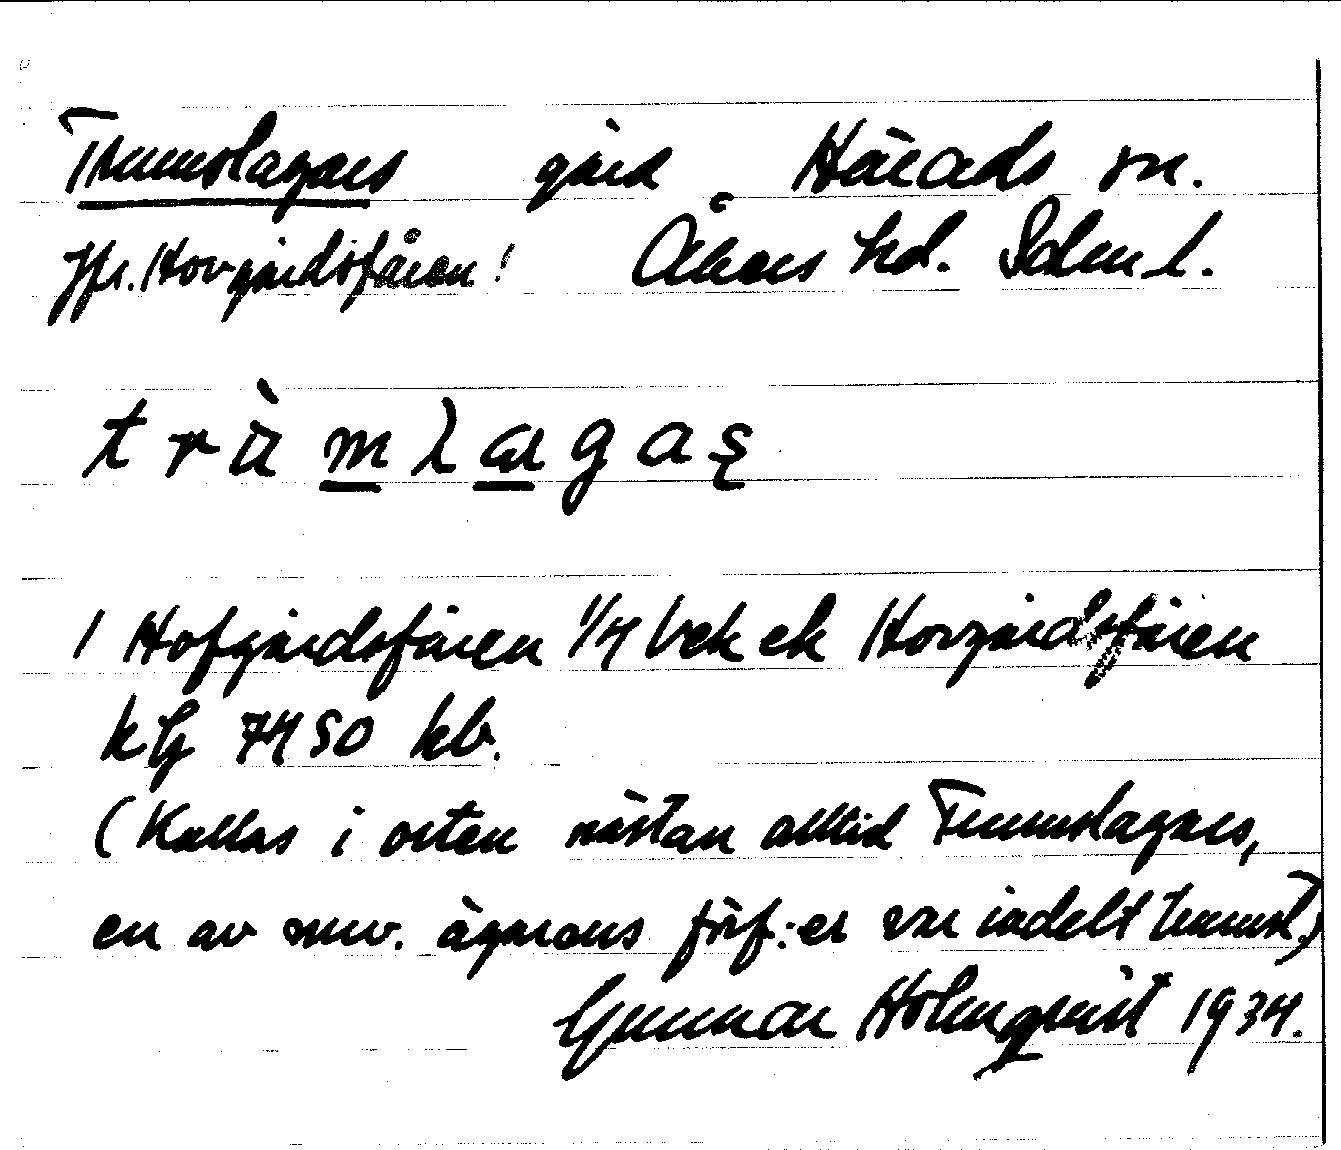 Trumslagars gård Härads sn.
Jfr. Hovgårdsfåren! Åkers hd. Södm l.
tràmlagas
1 Hofgårdsfåren 1/4 bek ek Hovgårdsfåren
kG 7450 hb.
(Kallas i orten nästan alltid Trumslagars,
en av nuv. ägarens förf:er var indelt trumsl.)
Gunnar Holmqvist 1934.